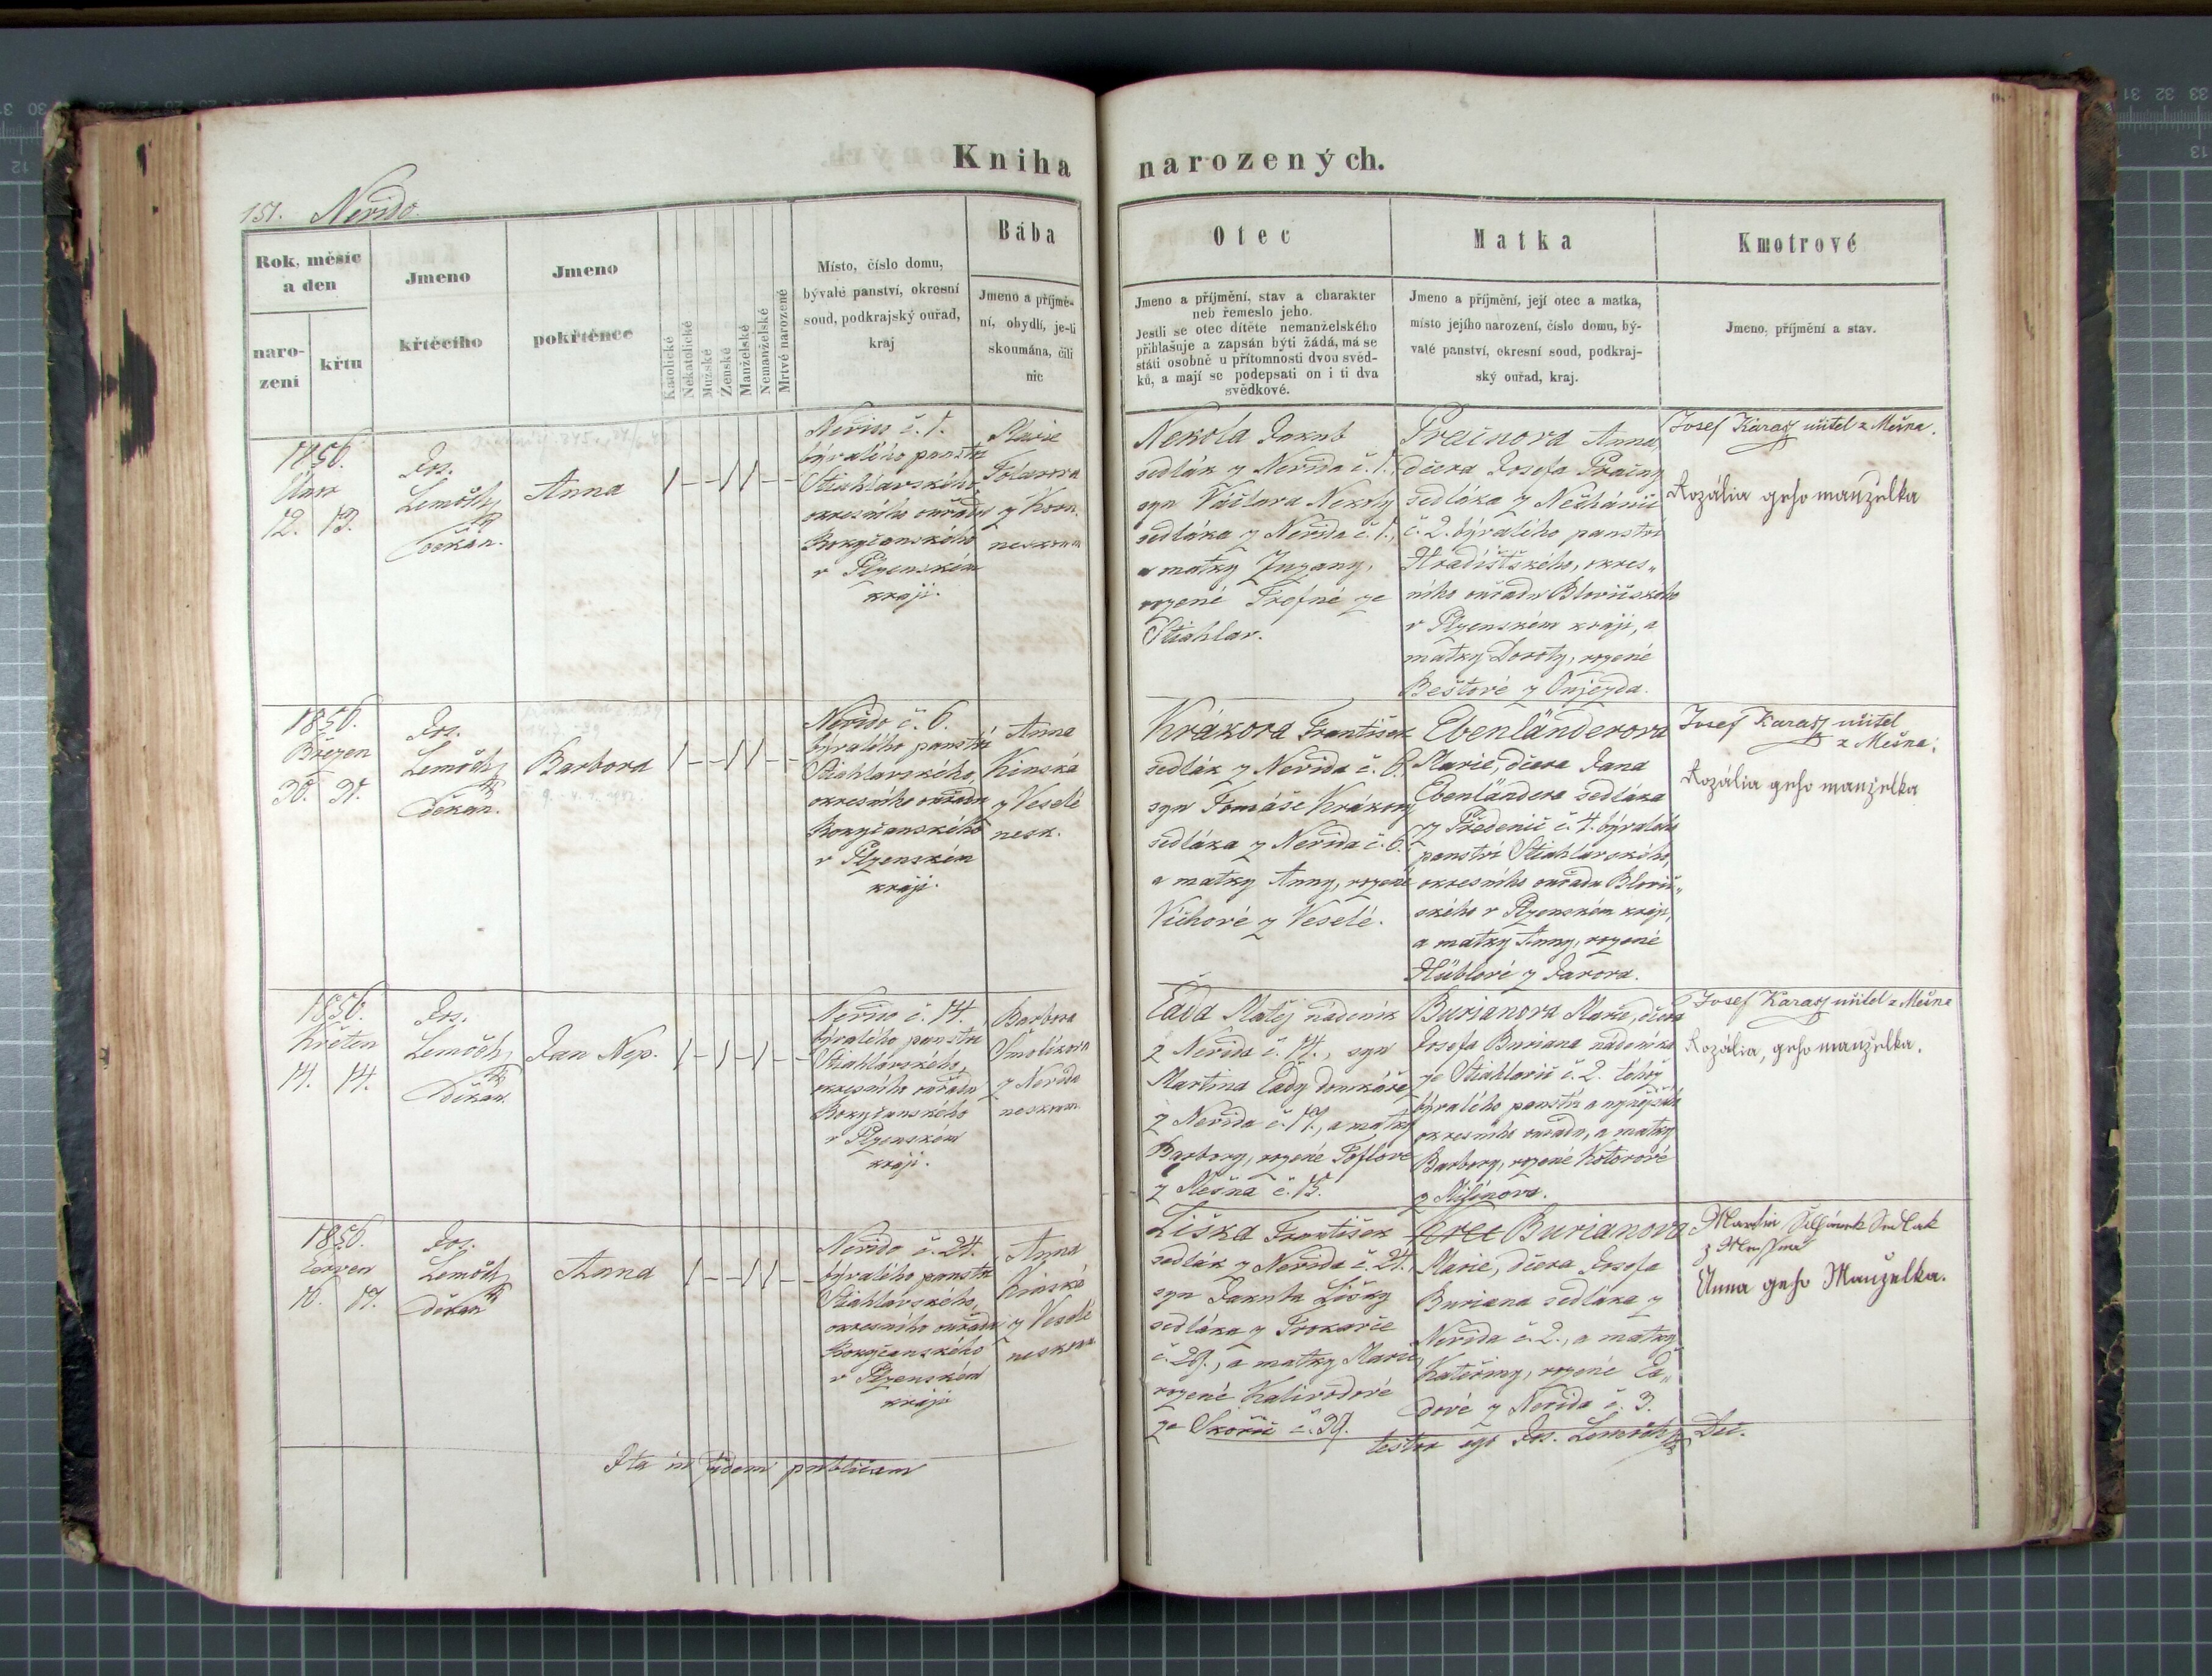 Kniha narozených.
151. Neřído.
Rok, měsíc a den
narození
křtu
Jmeno křtěcího
Jmeno pokřtěnce
Katolické
Nekatolické
Mužské
Ženské
Manželské
Nemanželské
Mrtvě narozené
Místo, číslo domu,
bývalé panství, okresní
soud, podkrajský ouřad,
kraj
Bába
Jmeno a příjmě-
ní, obydlí, je-li
skoumána, čili
nic
Otec
Jmeno a příjmění, stav a charakter
neb řemeslo jeho.
Jestli se otec dítěte nemanželského
přihlašuje a zapsán býti žádá, má se
státi osobně u přítomnosti dvou svěd-
ků, a mají se podepsati on i ti dva
svědkové.
Matka
Jmeno a příjmění, její otec a matka,
místo jejího narození, číslo domu, bý-
valé panství, okresní soud, podkraj-
ský ouřad, kraj.
Kmotrové
Jmeno, příjmění a stav.
1856.
Únor
12. 13.
Jos.
Lemoch
děkan.
Anna
č. 1.
bývalého panství
Štiahlavského,
okresního ouřadu
Rokyčanského
v Plzenském
kraji.
Marie
z Korn.
Nekola Jakub
sedlák z Neřída č. 1.,
syn Václava Nekoly
sedláka z Neřída č. 1.,
a matky Zuzany,
rozené Trefné ze
Štiahlav.
Anna,
dcera Josefa
sedláka z
č. 2. bývalého panství
Hradištského, okres„
ního ouřadu Blovického
v Plzenském kraji, a
matky Doroty, rozené
Beštové z Oujezda.
Josef Karasz učitel z Mešna.
Rozália geho manzelka
1856.
Březen
30. 31.
Jos.
Lemoch
děkan.
Barbora
Neřído č. 6.
bývalého panství
Štiahlavského,
okresního ouřadu
Rokyčanského
v Plzenském
kraji.
Anna
Kinská
z Veselé
nesk.
Krákora František
sedlák z Neřída č. 6.,
syn Tomáše Krákory
sedláka z Neřída č. 6.
a matky Anny, rozené
Víchové z Veselé.
Ebenländerova
Marie, dcera Jana
Ebenländera sedláka
z Předenic č. 4. bývalého
panství Štiahlavského,
okresního ouřadu Blovič„
ského v Plzenském kraji,
a matky Anny, rozené
Hüblové z Javora.
Josef Karasz učitel
z Mešna;
Rozália geho manželka
1856.
Květen
14. 14.
Jos.
Lemoch
děkan.
Jan Nep.
č. 14.
bývalého panství
Štiahlavského,
okresního ouřadu
Rokyčanského
v Plzenském
kraji.
Barbora
Smolíkova
z Neřída
neskoum.
Čada Matěj nádeník
z Neřída č. 14., syn
Martina Čady domkáře
z Neřída č. 17., a matky
Barbory, rozené Toflové
z Mešna č. 15.
Burianova Marie, dcera
Josefa Buriana nádeníka
ze Štiahlavic č. 2. téhož
bývalého panství a nynějšího
okresního ouřadu, a matky
Barbory, rozené Kotorové
z Milínova.
Josef Karasz učitel z Mešna
Rozália, geho manželka.
1856.
Červen
16. 17.
Jos.
Lemoch
děkan
Anna
Neřído č. 24.
bývalého panství
Štiahlavského,
okresního ouřadu
Rokyčanského
v Plzenském
kraji
Anna
Kinská
z Veselé
Liška František
sedlák z Neřída č. 24.
syn Jakuba Lišky
sedláka z Trokavce
č. 29., a matky Marie,
rozené Kalivodové
ze Skořic č. 39.
Burianova
Marie, dcera Josefa
Buriana sedláka z
Neřída č. 2., a matky
Kateřiny, rozené Ča„
dové z Neřída č. 3.
Martin Sedlak
Anna geho Manzelka.
Ita in fidem publicam
testor ego Jos. Lemoch Dec.